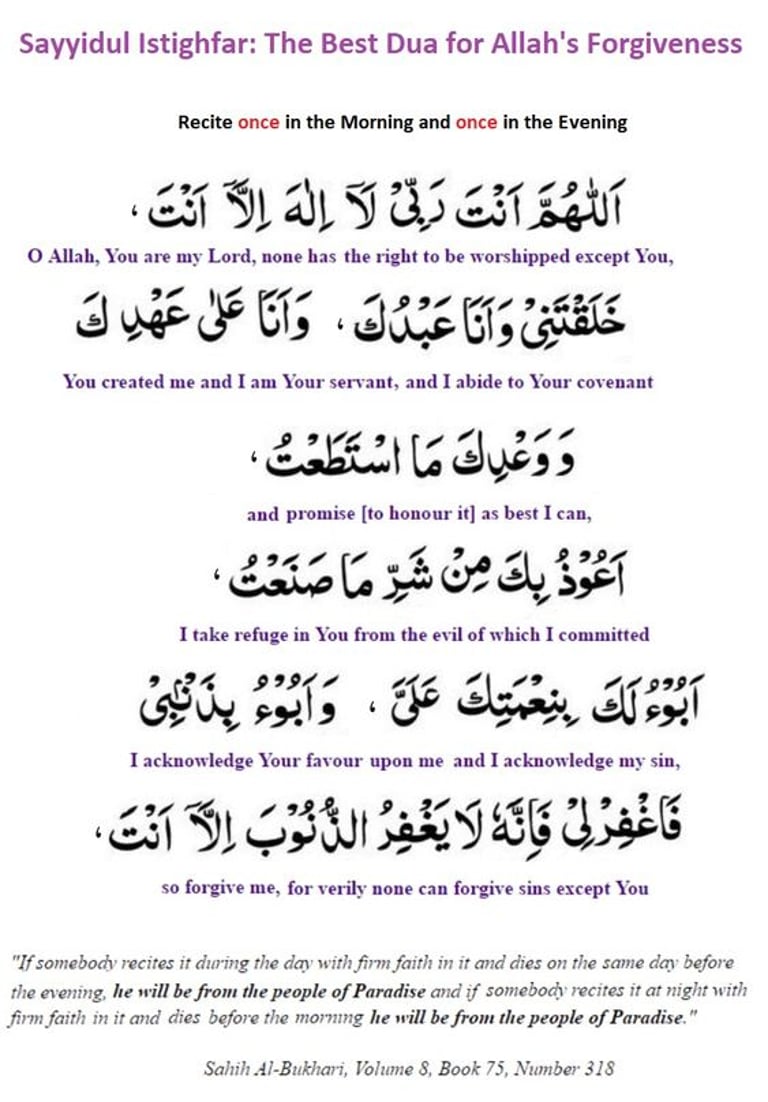 Sayyidul Istighfar: The Best Dua for Allah's Forgiveness
Recite once in the Morning and once in the Evening
اَللّٰهُمَّ اَنْتَ رَبِّيْ لَآ اِلٰهَ اِلَّآ اَنْتَ ،
O Allah, You are my Lord, none has the right to be worshipped except You,
خَلَقْتَنِيْ وَاَنَا عَبْدُكَ ، وَاَنَا عَلٰى عَهْدِكَ
You created me and I am Your servant, and I abide to Your covenant
وَوَعْدِكَ مَا اسْتَطَعْتُ ،
and promise [to honour it] as best I can,
اَعُوْذُ بِكَ مِنْ شَرِّ مَا صَنَعْتُ ،
I take refuge in You from the evil of which I committed
اَبُوْءُ لَكَ بِنِعْمَتِكَ عَلَيَّ ، وَاَبُوْءُ بِذَنْبِيْ
I acknowledge Your favour upon me and I acknowledge my sin,
فَاغْفِرْلِيْ فَاِنَّهٗ لَا يَغْفِرُ الذُّنُوْبَ اِلَّآ اَنْتَ ،
so forgive me, for verily none can forgive sins except You
"If somebody recites it during the day with firm faith in it and dies on the same day before
the evening, he will be from the people of Paradise and if somebody recites it at night with
firm faith in it and dies before the morning he will be from the people of Paradise."
Sahih Al-Bukhari, Volume 8, Book 75, Number 318